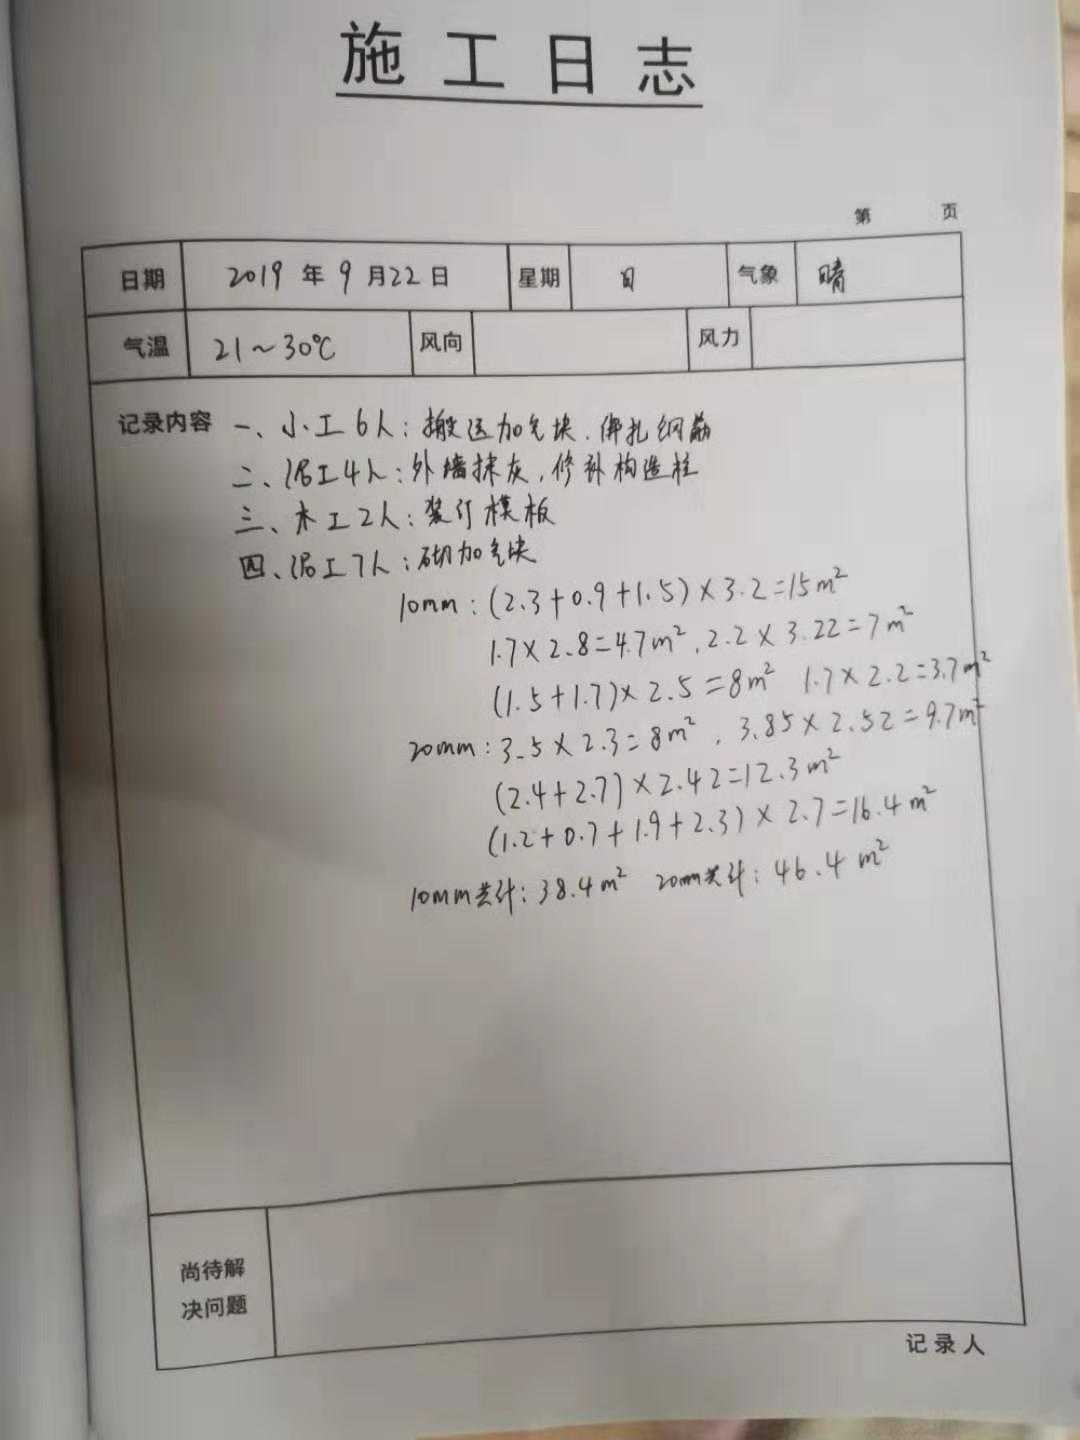 施工日志
第 页
日期 2019年9月22日 星期 日 气象 晴
气温 21~30℃ 风向 风力
记录内容 一、小工6人:搬运加气块、绑扎钢筋
二、泥工4人:外墙抹灰,修补构造柱
三、木工2人:装订模板
四、泥工7人:砌加气块
10mm:(2.3+0.9+1.5)×3.2=15m²
1.7×2.8=4.7m²,2.2×3.22=7m²
(1.5+1.7)×2.5=8m² 1.7×2.2=3.7m²
20mm:3.5×2.3=8m²,3.85×2.52=9.7m²
(2.4+2.7)×2.42=12.3m²
(1.2+0.7+1.9+2.3)×2.7=16.4m²
10mm共计:38.4m² 20mm共计:46.4m²
尚待解
决问题
记录人